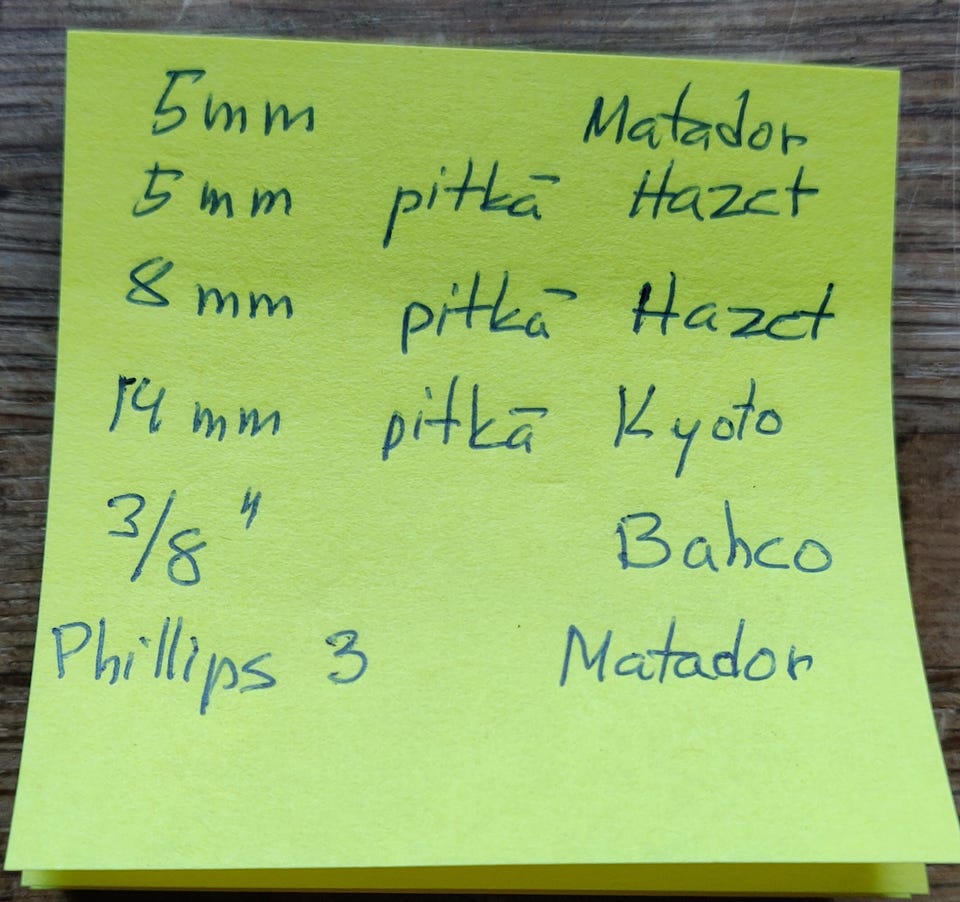 5mm Matador
5mm pitkä Hazet
8mm pitkä Hazet
14mm pitkä Kyoto
3/8" Bahco
Phillips 3 Matador